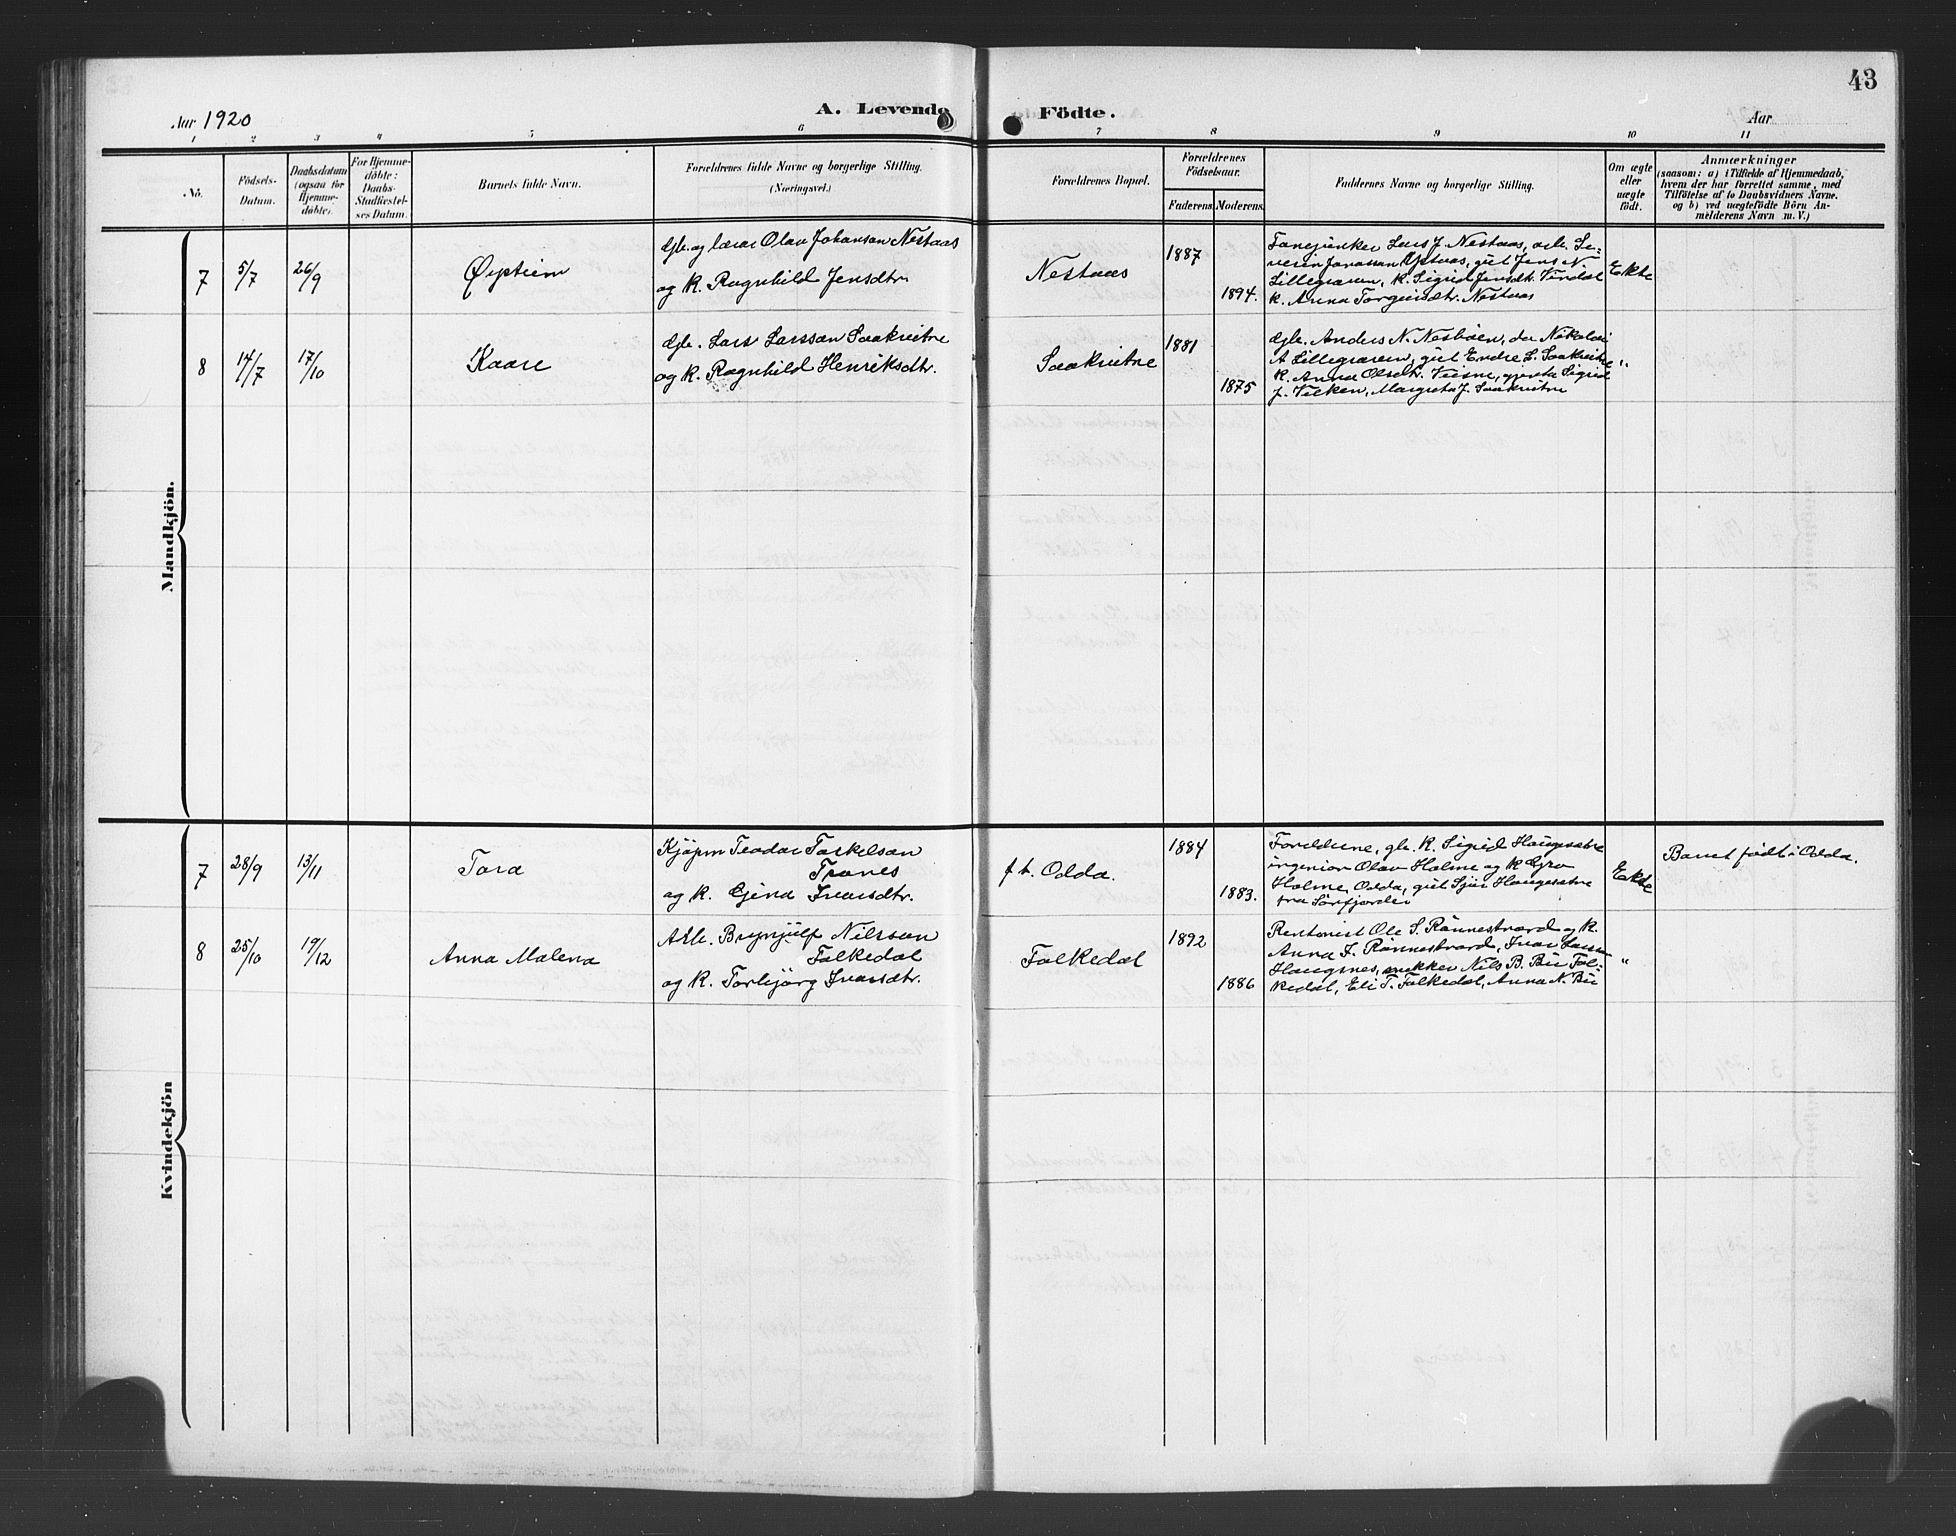 43
Aar 1920
A. Levende Födte.
Aar
1 2 3 4 5 6 7 8 9 10 11
No.
Födsels-
Datum.
Daabsdatum
(ogsaa for
Hjemme-
döbte).
For Hjemme-
döbte:
Daabs-
Stadfæstel-
ses Datum.
Barnets fulde Navn.
Forældrenes fulde Navne og borgerlige Stilling.
(Næringsvei.)
Forældrenes Bopæl.
Forældrenes
Födselsaar.
Faderens. Moderens.
Faddernes Navne og borgerlige Stilling.
Om ægte
eller
uægte
födt.
Anmærkninger
(saasom: a) i Tilfælde af Hjemmedaab,
hvem der har forrettet samme, med
Tilföielse af to Daabsvidners Navne.
og b) ved uægtefödte Börn An-
melderens Navn m. V.)
Mandkjön.
7 5/7 26/9
Øystein
Gb. og lærar Olav Johansan Nestaas
og k. Ragnhild Jensdtr.
Nestaas
1887
1894.
Fanejunker Lars J. Nestaas, arb. Se-
verin Jonassan Ystaas, gut Jens N.
Lillegraven, k. Sigrid Jensdtr.
k. Anna Torgeirsdtr. Nestaas
Ekte
8 14/7 17/10
Kaare
Gb. Lars Larssan Saakvitne
og k. Ragnhild Henriksdtr.
Saakvitne
1881
1875
Gb. Anders N. Nesbøen, do Nikolai
A Lillegraven, gut Endre L. Saakvitne
k. Anna Olsdtr. gjenta Sigrid
J. Vilken, Margreta J. Saakvitne
"
Kvindekjön
7 28/9 13/11
Tora
Kjøpm Teodor Torkelsan
Tranes
og k. Gjena Ivarsdtr.
f t. Odda.
1884
1883.
Foreldrene, gb. k. Sigrid Haugesætre
ingeniør Olav Holme og k Gro
Holme, Odda, gut Sjur Haugesætre
fra Sørfjorden
Ekte
Barnet født i Odda.
8 25/10 19/12
Anna Malena
Arb. Brynjulf Nilssan
Folkedal
og k. Torbjørg Ivarsdtr.
Folkedal
1892
1886
Rentenist Ole S. Rønnestrand og k.
Anna I. Rønnestrand, Ivar Larssan
Haugsnes, Nils B. Bu Fol-
kedal, Eli T. Folkedal, Anna N. Bu
"